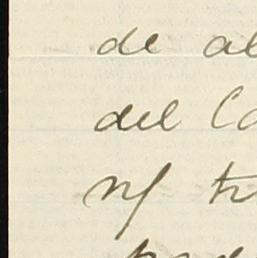 de al
del Co
n/ tr